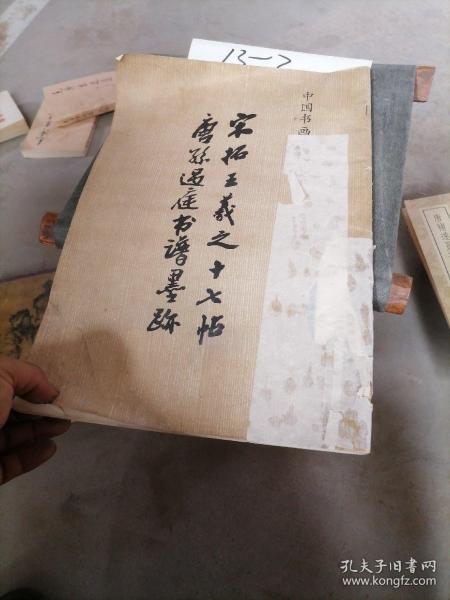 13-7
中国书画
宋拓王羲之十七帖
唐孙过庭书谱墨跡
孔夫子旧书网
www.kongfz.com